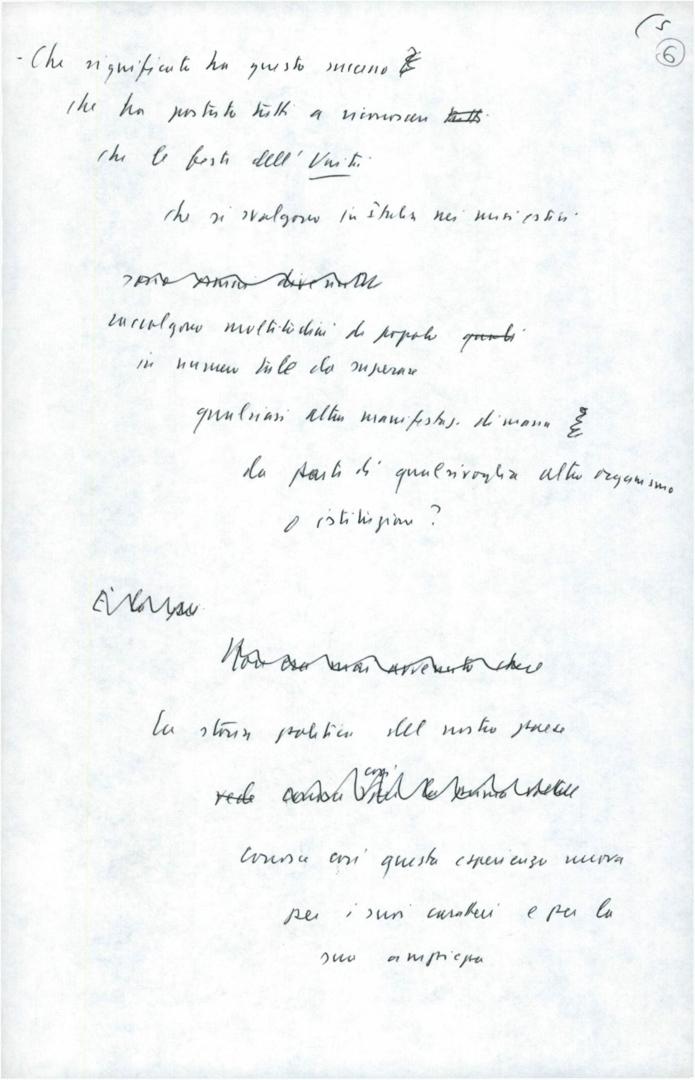 (5
6
- Che significato ha questo successo
che ha portato tutti a riconoscere tutti
che le feste dell'Unità
che si svolgono in Italia nei mesi estivi
sono ormai diventate
coinvolgono moltitudini di popolo quali
in numero tale da superare
qualsiasi altra manifestaz. di massa
da parte di qualsivoglia altro organismo
o istituzione?
Non era mai avvenuto che
La storia politica del nostro paese
vede così
conosce così questa esperienza nuova
per i suoi caratteri e per la
sua ampiezza